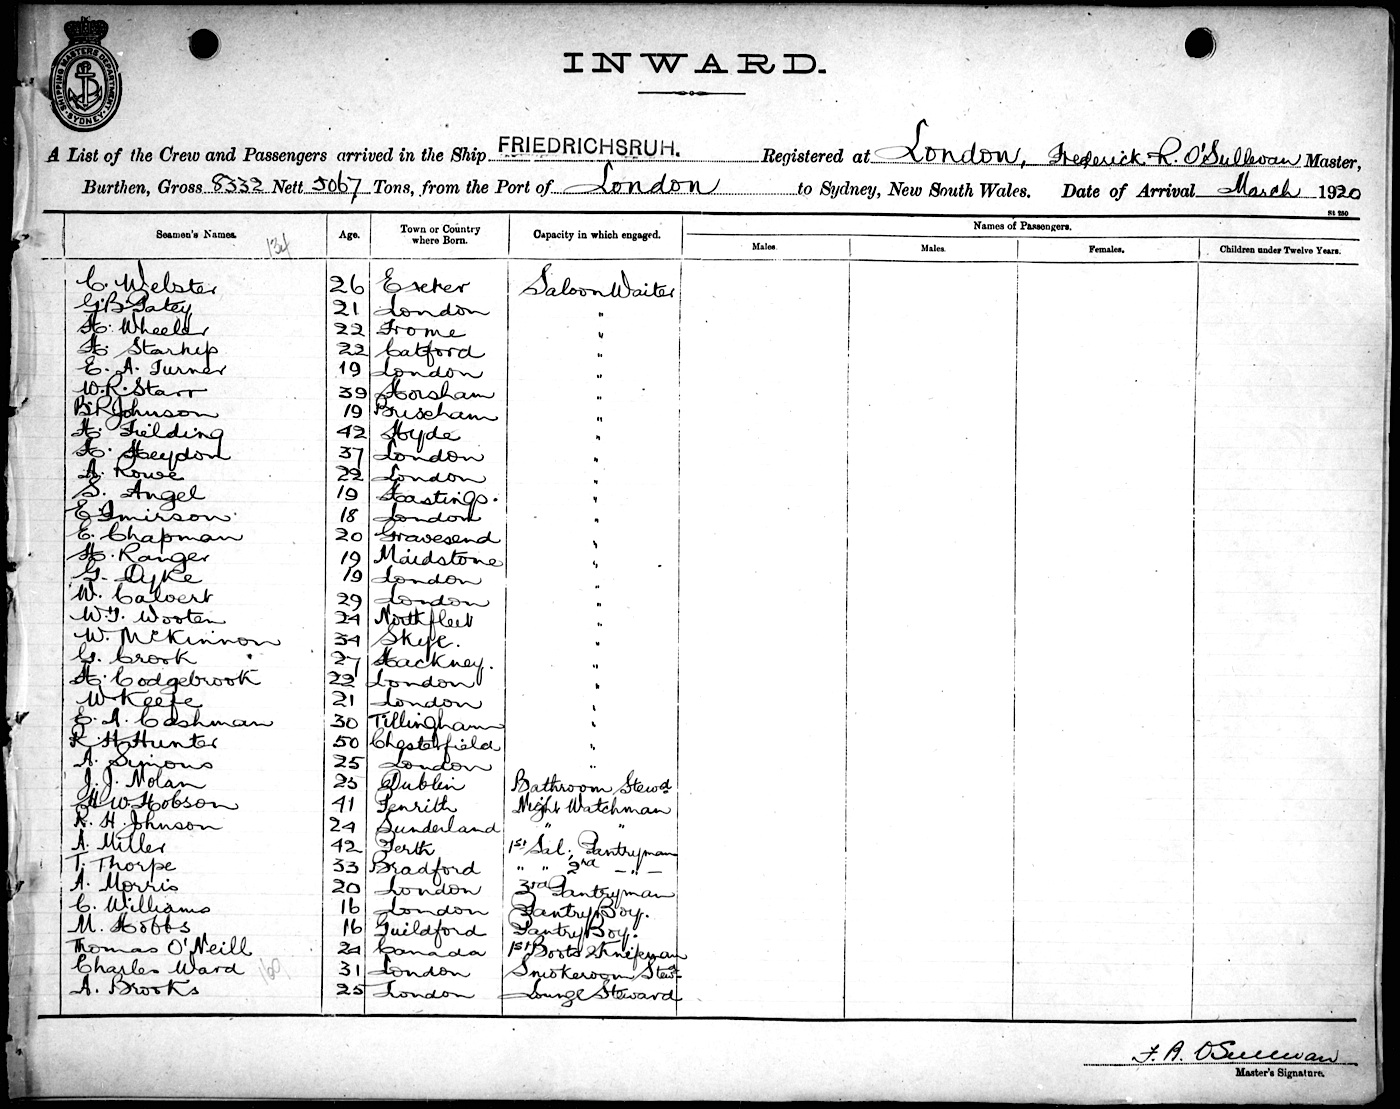 SHIPPING MASTERS DEPARTMENT. SYDNEY.
INWARD.
A List of the Crew and Passengers arrived in the Ship FRIEDRICHSRUH. Registered at London, Frederick R. O'Sullivan Master,
Burthen, Gross 8332 Nett 5067 Tons, from the Port of London to Sydney, New South Wales. Date of Arrival March 1920
St 250
Seamen's Names. Age. Town or Country where Born. Capacity in which engaged. Names of Passengers.
Males. Males. Females. Children under Twelve Years.
134
C. Webster 26 Exeter Saloon Waiter
G. B. Patey 21 London "
H. Wheeler 22 Frome "
H. Starkip 22 Catford "
E. A. Turner 19 London "
W. R. Starr 39 Horsham "
B. R. Johnson 19 Brixham "
H. Fielding 42 Hyde "
H. Heydon 37 London "
A. Rowe 22 London "
S. Angel 19 Hastings. "
E. Imirson 18 London "
E. Chapman 20 Gravesend "
H. Ranger 19 Maidstone "
G. Dyke 19 London "
W. Calvert 29 London "
W. T. Wooten 24 Northfleet "
W. McKinnon 34 Skye. "
G. Crook 27 Hackney. "
H. Codgebrook 22 London "
W Keefe 21 London "
E. A. Cashman 30 Tillingham "
R. H Hunter 50 Chesterfield "
A. Simons 25 London "
J. J. Nolan 25 Dublin Bathroom Stewd
H W Hobson 41 Penrith Night Watchman
R. H. Johnson 24 Sunderland " "
A. Miller 42 Perth 1st Sal. Pantryman
T. Thorpe 33 Bradford " " 2nd — " —
A. Morris 20 London 3rd Pantryman
C. Williams 16 London Pantry Boy.
M. Hobbs 16 Guildford Pantry Boy.
Thomas O'Neill 24 Canada 1st Boots & Knifeman
Charles Ward 31 London Smokeroom Stewd
A. Brooks 25 London Lounge Steward
F. R. O'Sullivan
Master's Signature.